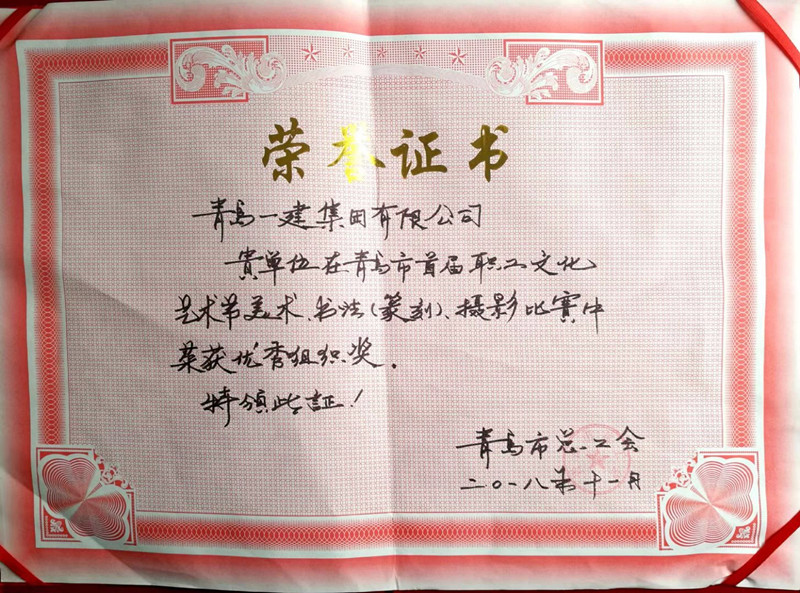 荣誉证书
青岛一建集团有限公司
贵单位在青岛市首届职工文化
艺术节美术、书法(篆刻)、摄影比赛中
荣获优秀组织奖.
特颁此证!
青岛市总工会
二〇一八年十一月